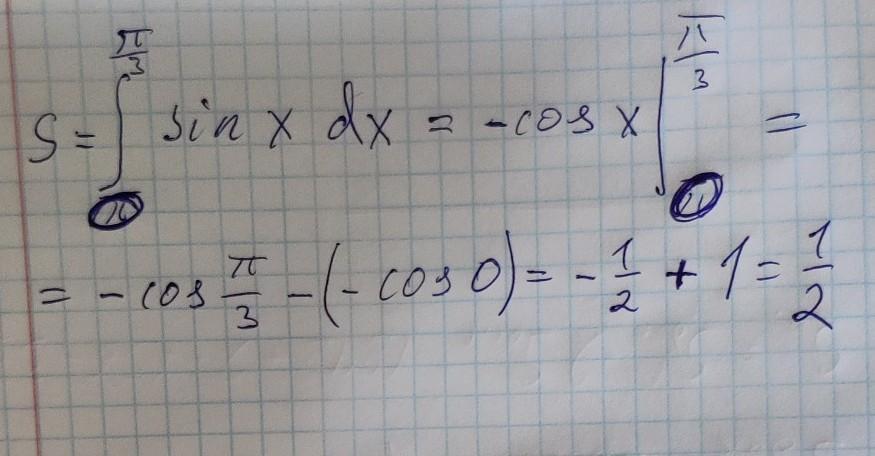 S = ∫_0^{π/3} sin x dx = -cos x |_0^{π/3} =
= -cos π/3 - (-cos 0) = -1/2 + 1 = 1/2